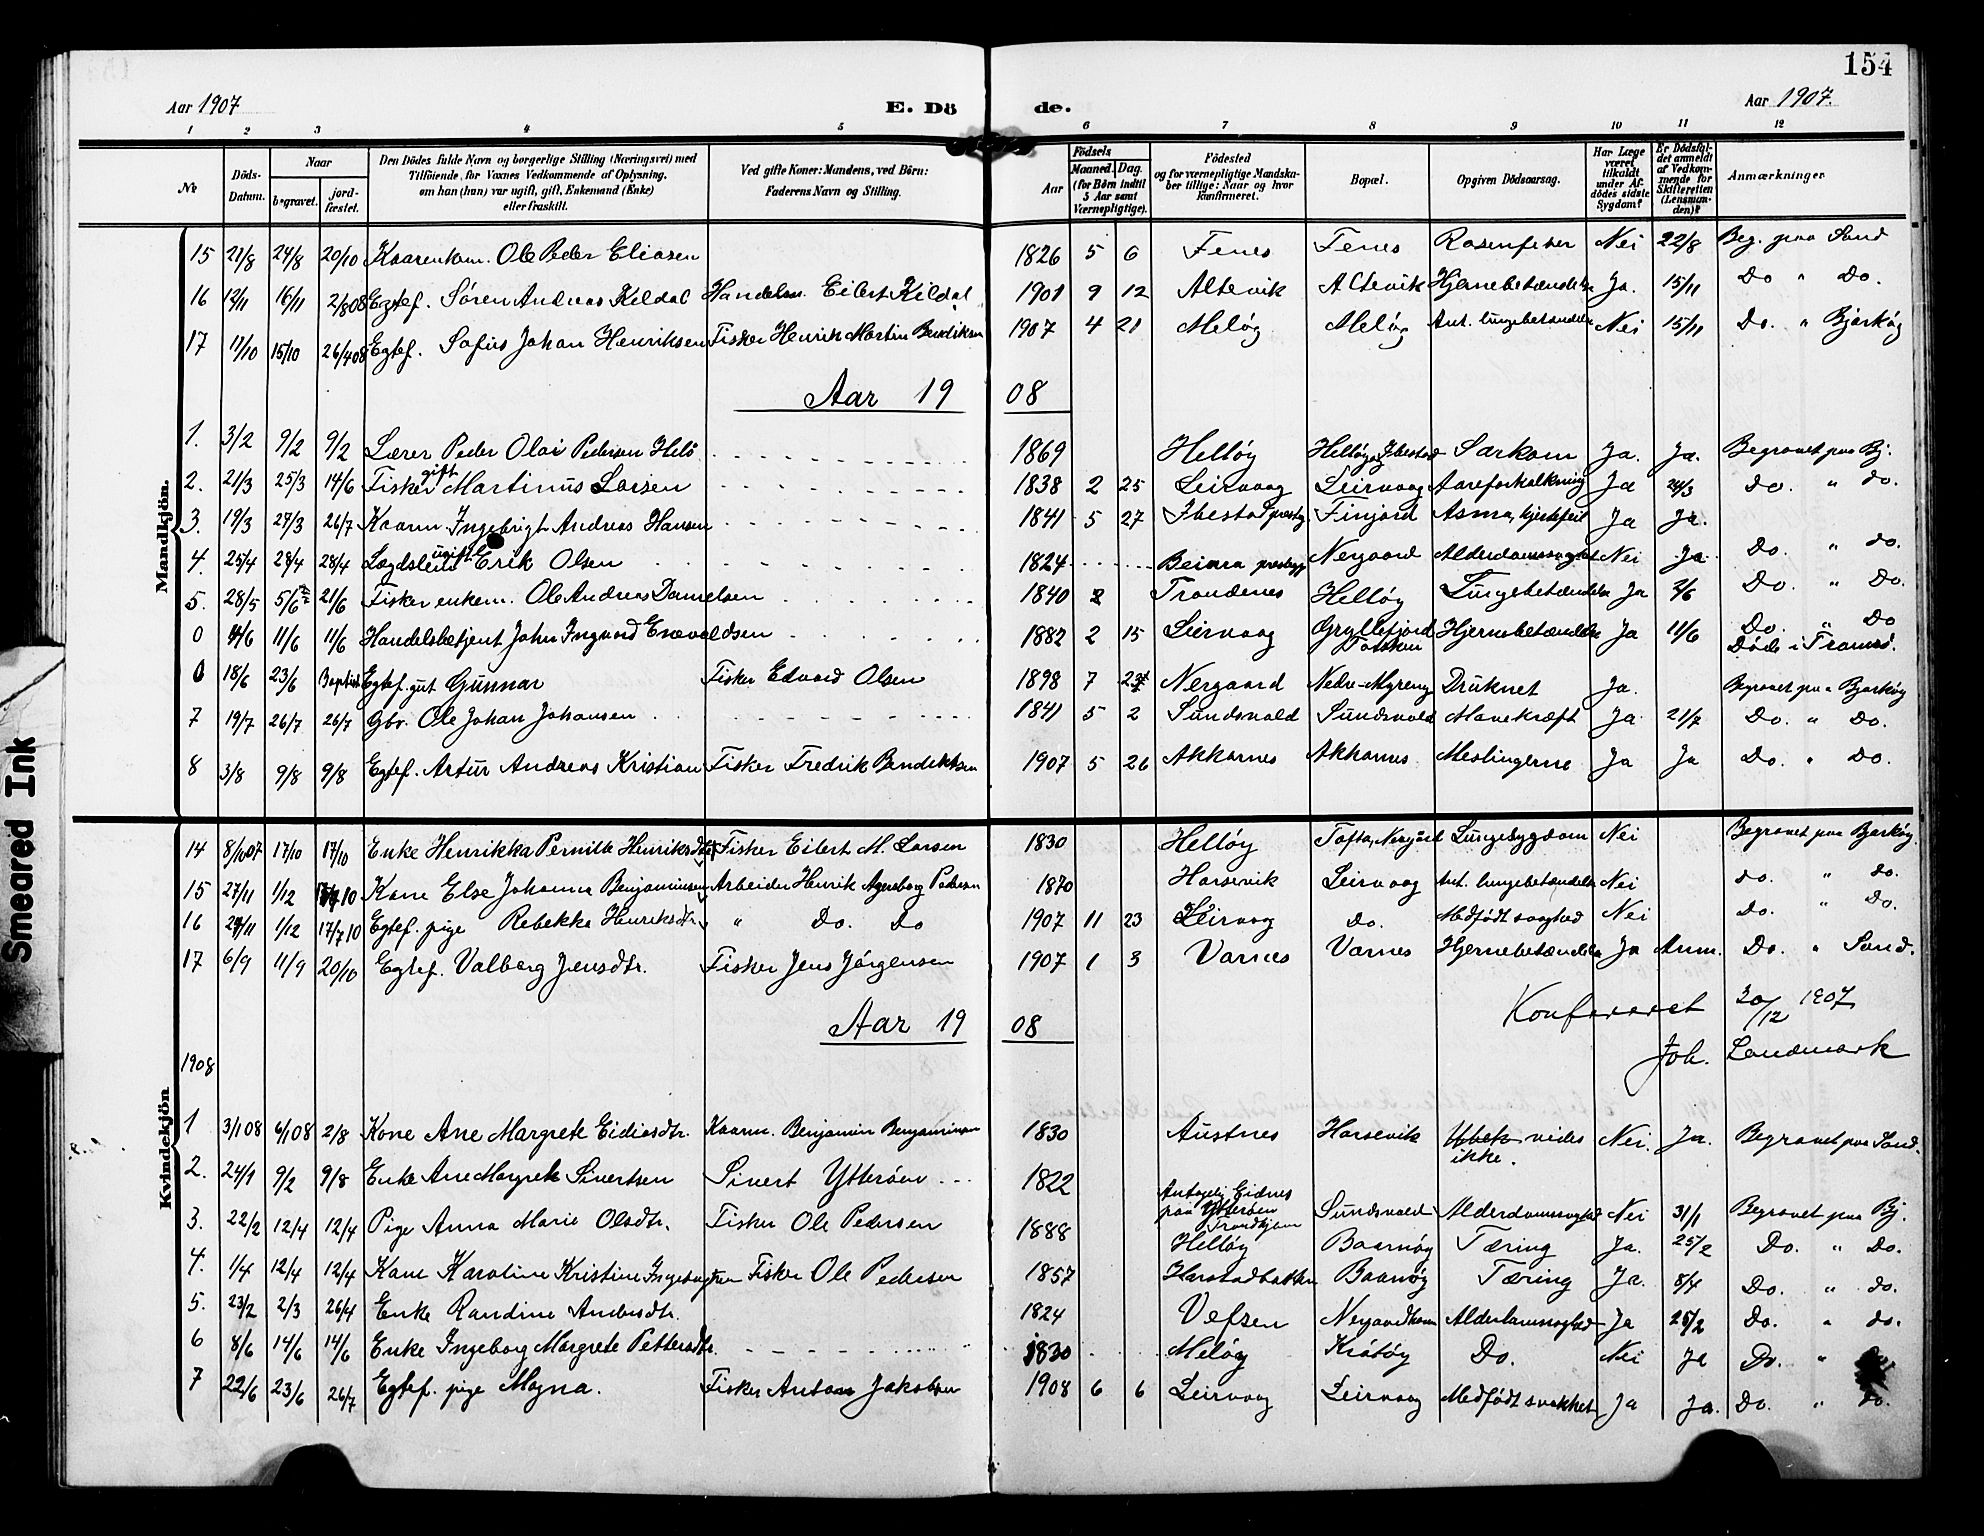 154
Aar 1907 E. Dö de. Aar 1907.
1 2 3 4 5 6 7 8 9 10 11 12
No Döds-Datum. Naar begravet. jord-fæstet. Den Dödes fulde Navn og borgerlige Stilling (Næringsvei) med Tilföiende, for Voxnes Vedkommende af Oplysning, om han (hun) var ugift, gift, Enkemand (Enke) eller fraskilt. Ved gifte Koner: Mandens, ved Börn: Faderens Navn og Stilling. Aar Födsels Maaned. Dag. (for Börn indtil 5 Aar samt Værnepligtige). Födested og for værnepligtige Mandska-ber tillige: Naar og hvor konfirmeret. Bopæl. Opgiven Dödsaarsag. Har Læge været tilkaldt under Af-dödes sidste Sygdom? Er Dödsfal-det anmeldt af Vedkom-mende for Skifteretten (Lensman-den)? Anmærkninger
Mandkjön.
15 21/8 24/8 20/10 Kaarenkom. Ole Peder Eliasen 1826 5 6 Fenes Fenes Rosenfeber Nei 22/8 Beg. paa Sand
16 12/11 16/11 2/808 Egtef. Sören Andreas Kildal Handelsm. Eilert Kildal 1901 9 12 Altevik Altevik Hjernebetændelse Ja. 15/11 Do " Do.
17 11/10 15/10 26/408 Egtef. Sofus Johan Henriksen Fisker Henrik Martin Bendiksen 1907 4 21 Meløy Meløy Ant. lungebetændelse Nei 15/11 Do. " Bjarkøy
Aar 19 08
1. 3/2 9/2 9/2 Lærer Peder Olai Pedersen Helø 1869 Helløy Helløy, Ibestad Sarkom Ja. Ja. Begravet paa Bj.
2. 21/3 25/3 14/6 Fisker gift Martinus Larsen 1838 2 25 Leirvaag Leirvaag Aareforkalkning Ja 24/3 Do. " do.
3. 19/3 27/3 26/7 Kaarm. Ingebrigt Andreas Hansen 1841 5 27 Ibestad prestg. Finjord Asma, hjertefeil Ja Ja.
4. 25/4 28/4 28/4 Lægdslem ugift Erik Olsen 1824 Beiarn prestegj Nergaard Alderdomssvaghed Nei Ja Do. " do.
5. 28/5 5/6 21/6 Fisker enkem. Ole Andreas Danielsen 1840 2 Trondenes Helløy Lungebetændelse Ja 2/6 Do. " Do.
0 4/6 11/6 11/6 Handelsbetjent John Ingvard Enevoldsen 1882 2 15 Leirvaag Gryllefjord Torsken Hjernebetændelse Ja 11/6 Do. " Do Døde i Tromsø.
6 18/6 23/6 Baptist Egtef. gut Gunnar Fisker Edvard Olsen 1898 7 Nergaard Nedre-Myreng Druknet Ja. Begravet paa Bjarkøy
7 19/7 26/7 26/7 Gbr. Ole Johan Johansen 1841 5 2 Sundsvold Sundsvold Mavekræft Ja 21/7 Do. " Do.
8 3/8 9/8 9/8 Egtef. Artur Andreas Kristian Fisker Fredrik Bendiktsen 1907 5 26 Akkarnes Akkarnes Meslingerne Ja Ja Do. " Do.
Kvindekjön
14 8/1007 17/10 17/10 Enke Henrikka Pernille Henriksdtr Fisker Eilert M. Larsen 1830 Helløy Toften, Nergård Lungesygdom Nei Begravet paa Bjarkøy.
15 27/11 1/12 10 Kone Else Johanna Benjaminsen Arbeider Henrik Ageneborg Pedersen 1870 Harsevik Leirvaag Ant. lungebetændelse Nei do. " do.
16 29/11 1/12 17/710 Egtef. pige Rebekka Henriksdtr. " Do. Do 1907 11 23 Leirvaag Do. Medfødt svaghed Nei Do. " Do.
17 6/9 11/9 20/10 Egtef. Valborg Jensdtr. Fisker Jens Jørgensen 1907 1 3 Varnes Varnes Hjernebetændelse Ja Anm. Do. " Sand.
Konfereret 20/12 1907
Aar 19 08
Joh. Landmark
1908
1 3/108 6/108 2/8 Kone Ane Margrete Eidiasdtr. Kaarm. Benjamin Benjaminsen 1830 Austnes Harsevik Ubek vides ikke. Nei. Ja. Begravet paa Sand.
2. 24/1 9/2 9/8 Enke Ane Margrete Sivertsen Sivert Ytterøen 1822 Antagelig Eidnes paa Ytterøen Trondhjem Sundsvold Alderdomssvaghed Nei 31/1 Begravet paa Bj.
3. 22/2 12/4 12/4 Pige Anna Marie Olsdtr. Fisker Ole Pedersen 1888 Helløy Baarnøy Tæring Ja. 25/2 Do. " Do.
4. 1/4 12/4 12/4 Kone Karoline Kristine Fisker Ole Pedersen 1857 Harstadbotten Baanøy Tæring Ja. 8/4 Do. " do.
5. 23/2 2/3 26/4 Enke Randine Andersdtr. 1824 Vefsen Nergaardhavn Alderdomssvaghed Ja 25/2 Do. " do.
6 8/6 14/6 14/6 Enke Ingeborg Margrete Pettersdtr. 1830 Meløy Krøtøy Do. Nei Ja Do. "
7 22/6 23/6 26/7 Egtef. pige Magna. Fisker Anton Jakobsen 1908 6 6 Leirvaag Leirvaag Medfødt svakhet Ja Ja. Do. " do.
Smeared Ink